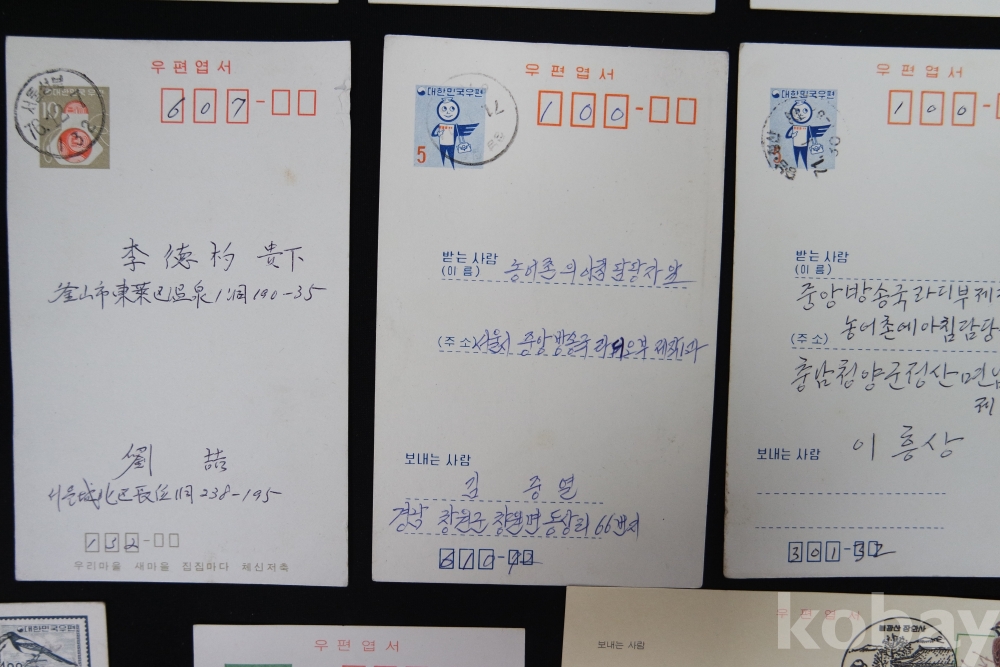 우편엽서
10
607-
李德杓 貴下
釜山市東萊区温泉1洞190-35
劉 喆
서울城北区長位1洞238-195
132-
우리마을 새마을 집집마다 체신저축
우편엽서
대한민국우편
5
100-
받는사람
(이름) 농어촌의 아침 담당자 앞
(주소) 서울시 중앙방송국 라디오부 제작과
보내는 사람
김 중열
경남 창원군 창원면 동상리 66번지
610-
우편엽서
대한민국우편
100-
받는사람
(이름)
중앙방송국라디부제
농어촌에아침담당
(주소)
충남청양군정산면
제
보내는 사람 이흥상
301-32
대한민국우편
우편엽서
우편엽서
보내는 사람
kobay